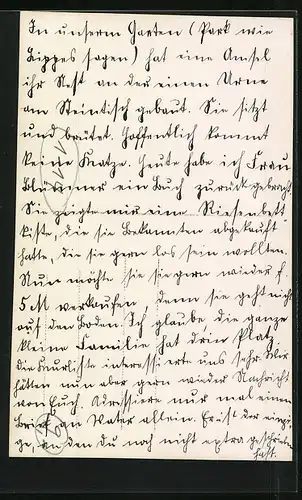 In unserem Garten (Park wie
Lippes sagen) hat eine Amsel
ihr Nest an der einen Urne
am Steintisch gebaut. Sie sitzt
und brütet. Hoffentlich kommt
keine Katze. Heute habe ich Frau
ein Buch zurück gebracht.
Sie zeigte mir eine Riesenbett
kiste, die sie Bekannten abgekauft
hatte, die sie gern los sein wollten.
Nun möchte sie sie gern wieder f.
5 M verkaufen denn sie geht nicht
auf den Boden. Ich glaube, die ganze
kleine Familie hat drin Platz.
die interessierte uns sehr. Wir
hätten nun aber gern wieder Nachricht
von Euch. Adressiere nur mal einen
Brief an Vater allein. Er ist der einzi-
ge, an den du noch nicht extra geschrieben
hast.